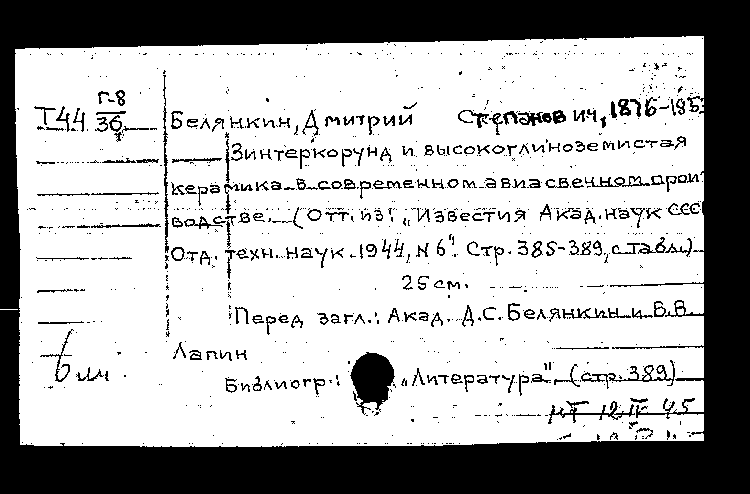 Г-8
Т44 36
Белянкин, Дмитрий Степанович, 1876-1953
Зинтеркорунд и высокоглиноземистая
керамика в современном авиасвечном произ
водстве. (Отт. из: „Известия Акад. наук СССР
Отд. техн. наук. 1944, N 6". Стр. 385-389, с табл.)
25 см.
Перед загл.: Акад. Д.С. Белянкин и Б.В.
Лапин
Библиогр.: „Литература". (стр. 389)
12 IV 45